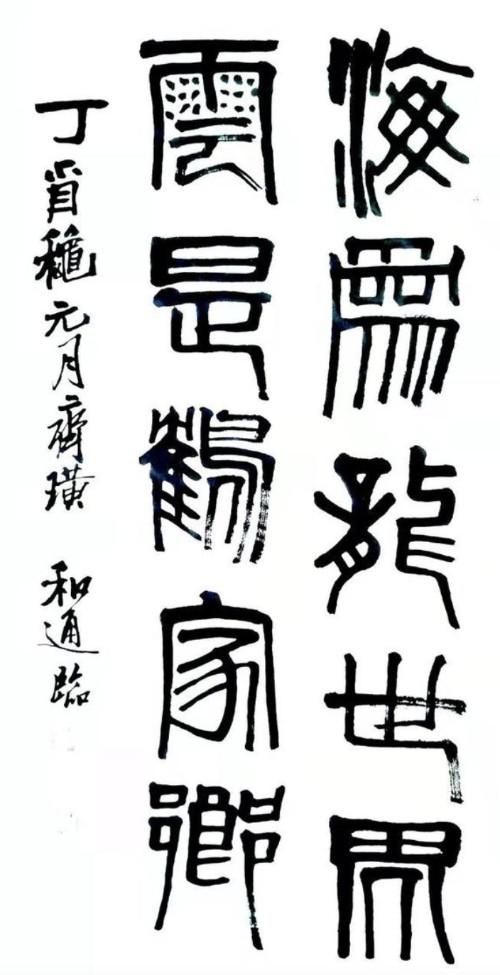 海為龍世界
雲是鶴家鄉
丁肖龝元月齊璜 和通臨